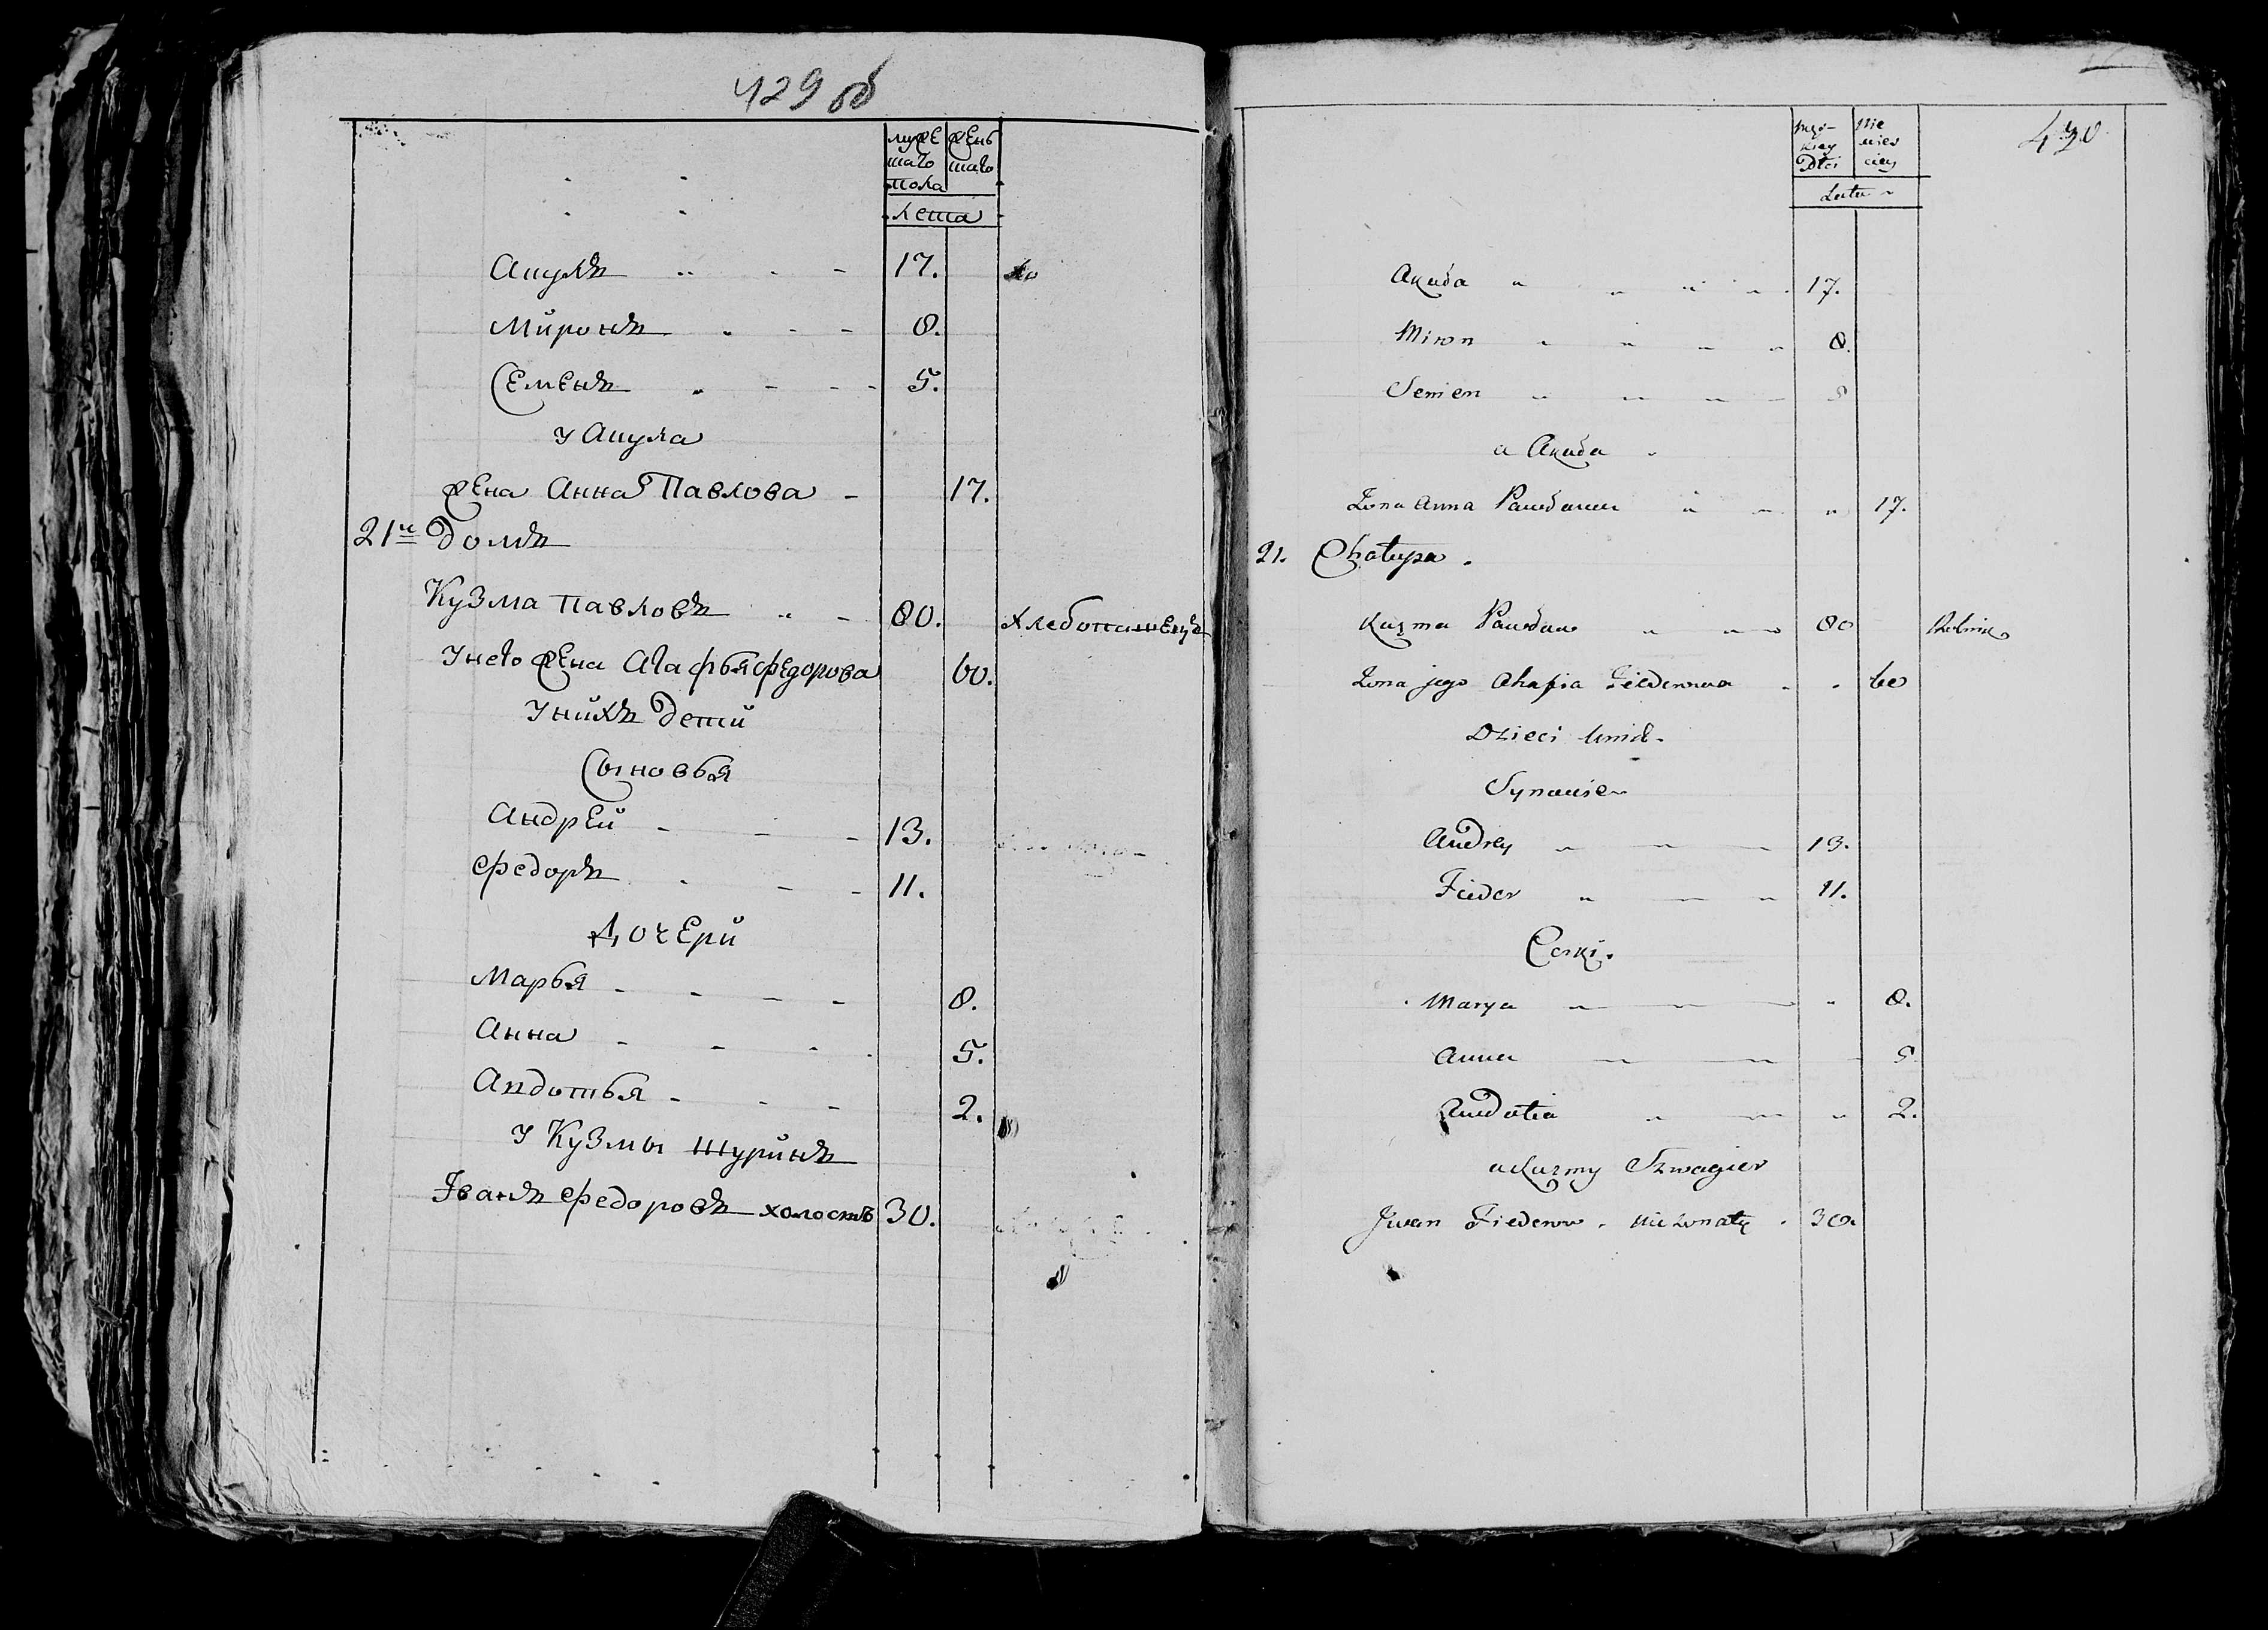 429 об
муже женъ
шаго шаго
пола
лета
Акулъ 17.
Миронъ 8.
Семенъ 5.
У Акула
жена Анна Павлова 17.
21й домъ
Кузма Павловъ 80. хлебопашецъ
У него жена Агафья Федорова 60.
У нихъ дети
Сыновья
Андрей 13.
Федоръ 11.
Дочери
Марья 8.
Анна 5.
Авдотья 2.
У Кузмы шуринъ
Іванъ Федоровъ холостъ 30.
430
męz- nie
kiey wies
płci ciey
Lata
Akuła 17.
Miron 8.
Semen 5
a Akuła
Zona Anna Pawłowa 17.
21. Chałupa.
Kuzma Pawłow 80 Rolnik
Zona jego Ahafia Fiedorowa 60
Dzieci unich
Synowie
Andrey 13.
Fiedor 11.
Corki.
Marya 8.
Anna 5
Awdotia 2.
u Kuzmy Szwagier
Jwan Fiedorow. nie zonaty. 30.